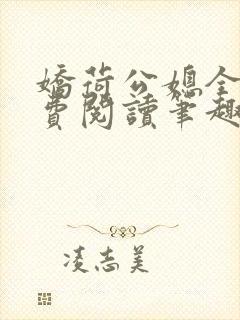 嬌荷公媳全
費閱讀筆趣
凌志美